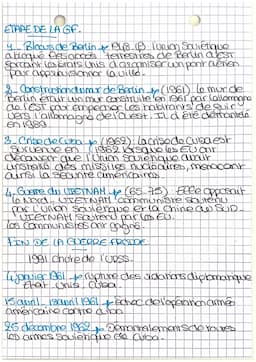 ETAPE DE LA GF.
1. Blocus de Berlin → l'union Soviétique
a bloqué les accès terrestres de Berlin a l'est
forcant les Etats Unis a organiser un pont aérien
pour approvisionner la ville.
2. Construction du mur de Berlin → (1961) le mur de
Berlin était un mur construite en 1961 par l'allemagne
de l'est pour empecher les habitants de fuir
vers l'allemagne de l'ouest. Il a été démantelé
en 1989
3. Crise de Cuba → (1962) la crise de Cuba est
survenue en (1962 lorsque les EU ont
découvert que l'Union Soviétique avait
installé des missiles nucléaires, menacant
ainsi la sécurité américaines.
4. Guerre du VIETNAM → (65-75) Elle opposait
le Nord-VIETNAM communiste soutenu
par l'union soviétique et la Chine au SUD
VIETNAM soutenu par les EU.
les communistes ont gagné.
FIN DE LA GUERRE FROIDE
1991 chute de l'URSS.
4 janvier 1961 → rupture des relations diplomatique
état unis, Cuba.
15 avril - 19 avril 1961 → échec de l'opération armée
américaine contre Cuba.
25 décembre 1962 → Démantelement de toutes
les armes soviétique de Cuba.